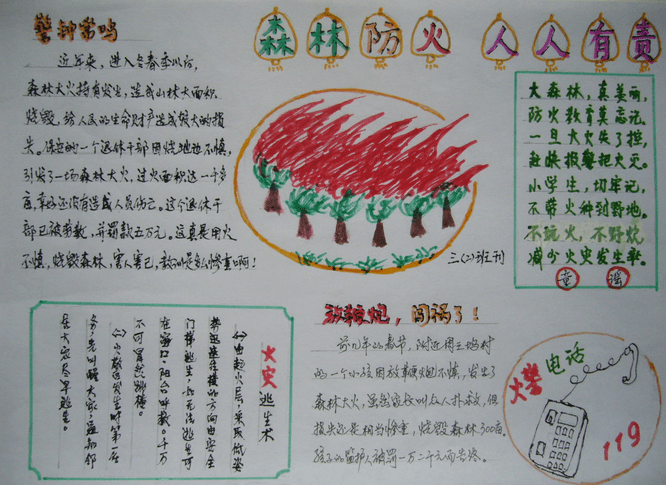 森林防火 人人有责
警钟常鸣
近年来，进入冬春季以后，
森林大火持有发生，造成山林大面积
烧毁，给人民的生命财产造成较大的损
失。保定的一个退休干部因烧地边不慎，
引发了一场森林大火，过火面积达一千多
亩，幸好还没有造成人员伤亡。这个退休干
部已被拘教，并罚款五万元。这真是用火
不慎，烧毁森林，害人害己，教训是多么惨重啊！
三(2)班刊
大森林，真美丽，
防火教育莫忘记，
一旦大火失了控，
赶快报警把火灭。
小学生，切牢记，
不带火种到野地。
不玩火，不野炊，
减少火灾发生率。
童谣
火灾逃生术
(一)由起火层，采取低姿
势迅速往楼的方向由安全
门梯逃生，如无法逃生可
在窗口，阳台呼救。千万
不可冒然跳楼。
(二)火灾发生时第一任
务，先叫醒大家，通知邻
居大家及早逃生。
放鞭炮，闯祸了！
前几年的春节，附近
的一个小孩因放鞭炮不慎，发生了
森林大火，虽然家长叫众人扑救，但
损失还是相当惨重，烧毁森林300亩，
孩子的监护人被罚一万二千元而告终。
火警电话
119